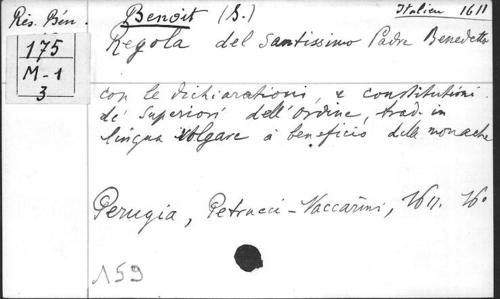 Rés. Bén.
Benoit (S.)
Italien 1611
175
M-1
3
Regola del Santissimo Padre Benedetto
con le dichiarationi, e constitutioni
de' Superiori dell'Ordine, trad. in
lingua volgare à beneficio delle monache
Perugia, Petrucci-Vaccarini, 1611. 16º
159